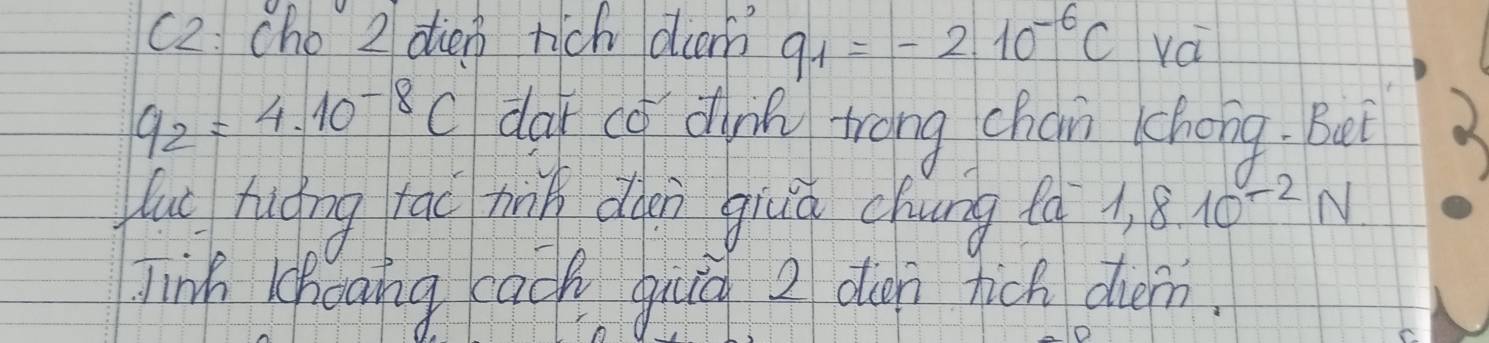 C2: Cho 2 điện tích điểm q1 = - 2.10^-6 C và
q2 = 4.10^-8 C đặt cố định trong chân không. Biết
lực tương tác tĩnh điện giữa chúng là 1,8.10^-2 N.
Tính khoảng cách giữa 2 điện tích điểm.